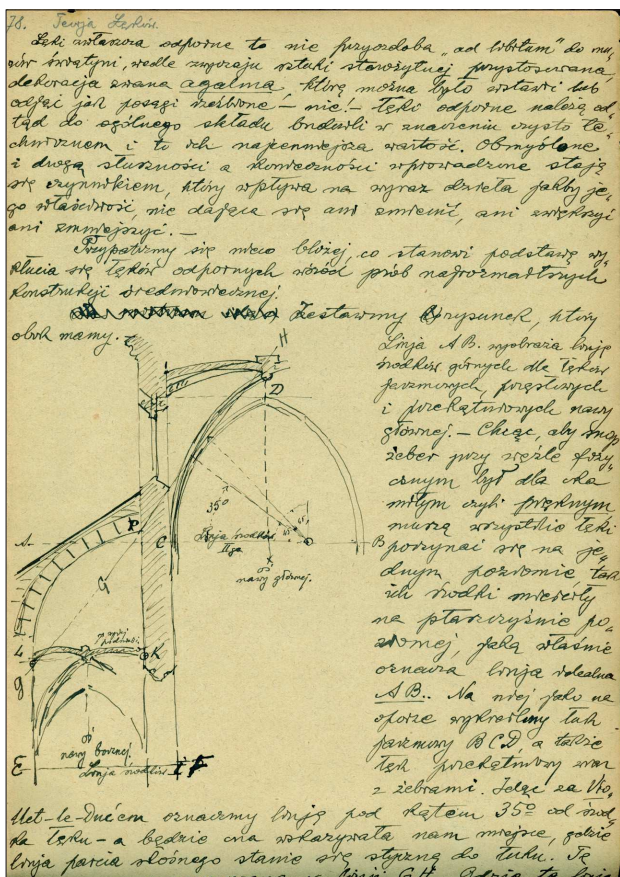 78. Teorja Łęków.
Łęki zwłaszcza odporne to nie przyozdoba „ad libitum" do mu„
rów świątyni, wedle zwyczaju sztuki starożytnej przystosowana,
dekoracja zwana agalma, którą można było wstawić lub
odjąć jak posągi rzeźbione — nie! — łęki odporne należą od„
tąd do ogólnego składu budowli w znaczeniu czysto te„
chnicznem i to ich najcenniejsza wartość. Obmyślone
i drogą słuszności a konieczności wprowadzone stają
się czynnikiem, który wpływa na wyraz dzieła jakby je„
go właściwość, nie dająca się ani zmienić, ani zwiększyć
ani zmniejszyć. —
Przypatrzmy się nieco bliżej, co stanowi podstawę wy„
kłucia się łęków odpornych wśród prób najrozmaitszych
konstrukcji średniowiecznej.
Zestawmy rysunek, który
obok mamy.
Linja A B. wyobraża linję
środków górnych dla łęków
jarzmowych, przęsłowych
i przekątniowych nawy
głównej. — Chcąc, aby snop
żeber przy węźle fizy„
cznym był dla oka
miłym czyli pięknym
muszą wszystkie łęki
poczynać się na je„
dnym poziomie tak
ich środki mieściły
na płaszczyźnie po„
ziomej, jaką właśnie
oznacza linja idealna
A B.. Na niej jako na
oporze wykreślmy łuk
jarzmowy B C D, a także
łęk przekątniowy wraz
z żebrami. Idąc za Vio„
llet-le-Duc'em oznaczmy linję pod kątem 35º od środ„
ka łęku — a będzie ona wskazywała nam miejsce, gdzie
linja parcia skośnego stanie się styczną do łuku. Tę
linji G H. Gdzie ta linja
H
D
35º
45º
Linja środków
IIga
oś
nawy głównej.
A
P
C
B
G
K
L
g
oś
nawy bocznej.
E
Linja środków I
F